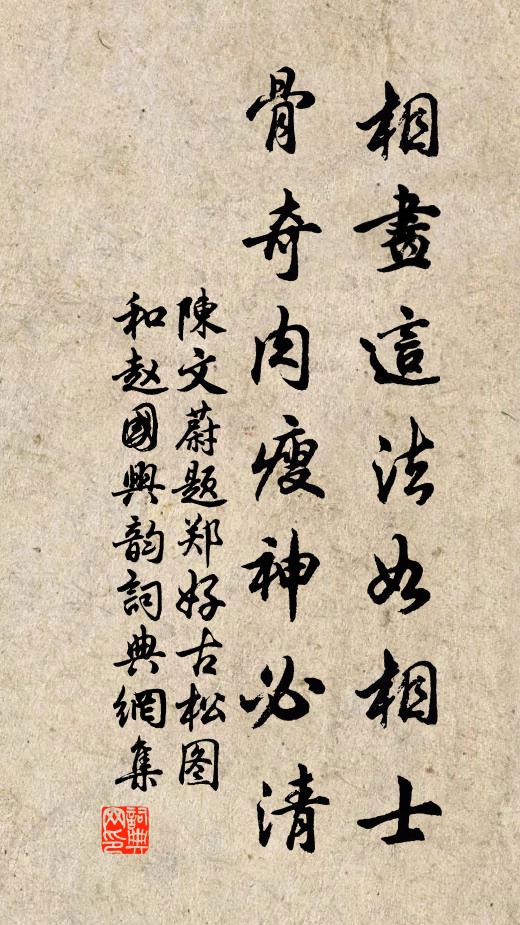 相畫這法如相士
骨奇肉瘦神必清
陳文蔚題郑好古松图
和赵國興韵詞典網集
詞典网印